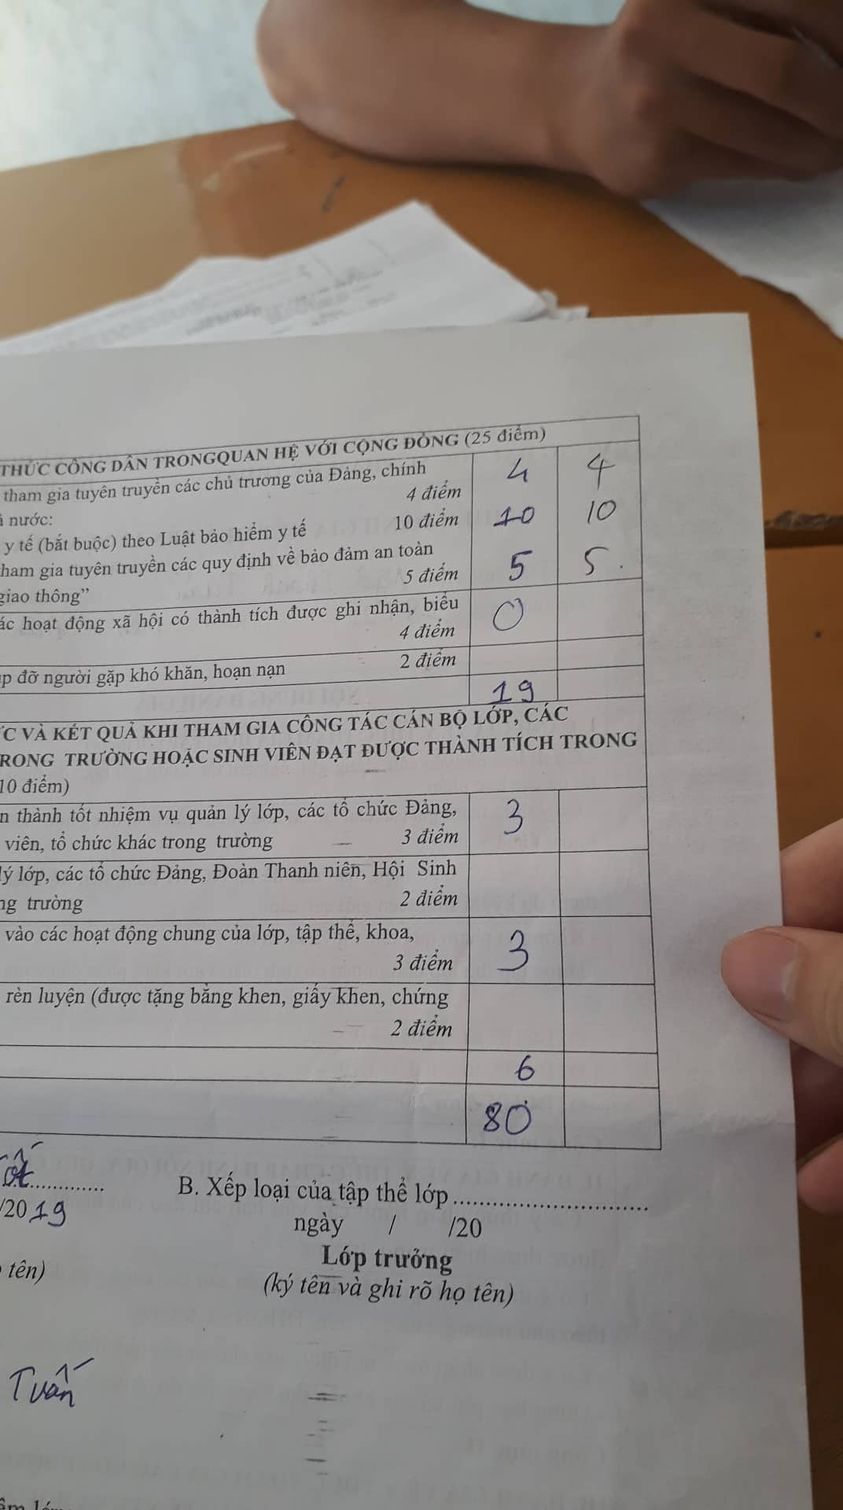 THỨC CÔNG DÂN TRONGQUAN HỆ VỚI CỘNG ĐỒNG (25 điểm)
tham gia tuyên truyền các chủ trương của Đảng, chính
nước: 4 điểm 4 4
y tế (bắt buộc) theo Luật bảo hiểm y tế 10 điểm 10 10
ham gia tuyên truyền các quy định về bảo đảm an toàn
giao thông” 5 điểm 5 5.
ác hoạt động xã hội có thành tích được ghi nhận, biểu
4 điểm 0
p đỡ người gặp khó khăn, hoạn nạn 2 điểm
19
C VÀ KẾT QUẢ KHI THAM GIA CÔNG TÁC CÁN BỘ LỚP, CÁC
RONG TRƯỜNG HOẶC SINH VIÊN ĐẠT ĐƯỢC THÀNH TÍCH TRONG
10 điểm)
n thành tốt nhiệm vụ quản lý lớp, các tổ chức Đảng,
viên, tổ chức khác trong trường 3 điểm 3
lý lớp, các tổ chức Đảng, Đoàn Thanh niên, Hội Sinh
ng trường 2 điểm
vào các hoạt động chung của lớp, tập thể, khoa,
3 điểm 3
rèn luyện (được tặng bằng khen, giấy khen, chứng
2 điểm
6
80
B. Xếp loại của tập thể lớp
/2019 ngày / /20
Lớp trưởng
tên) (ký tên và ghi rõ họ tên)
Tuấn